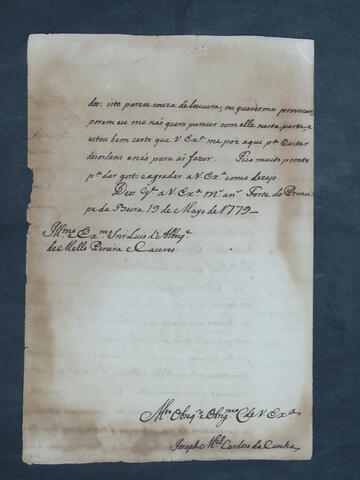 dos: isto parece couza de loucura, ou quererme provocar,
porem eu me não quero parecer com elle nesta parte, e
estou bem certo que V Exª me poz aqui pª evitar
desordens e não para as fazer. Fico muito prompto
pª dar gosto e agradar a V Exª como dezejo.
Deos gᵈᵉ a V Exª mˢ anˢ Forte do Princi-
pe da Beira 19 de Mayo de 1779
Illᵐᵒ e Exᵐᵒ Snr Luis d'Albuqᵉ
de Mello Pereira e Caceres
De V Exª
Joseph Mᵉˡ Cardozo da Cunha